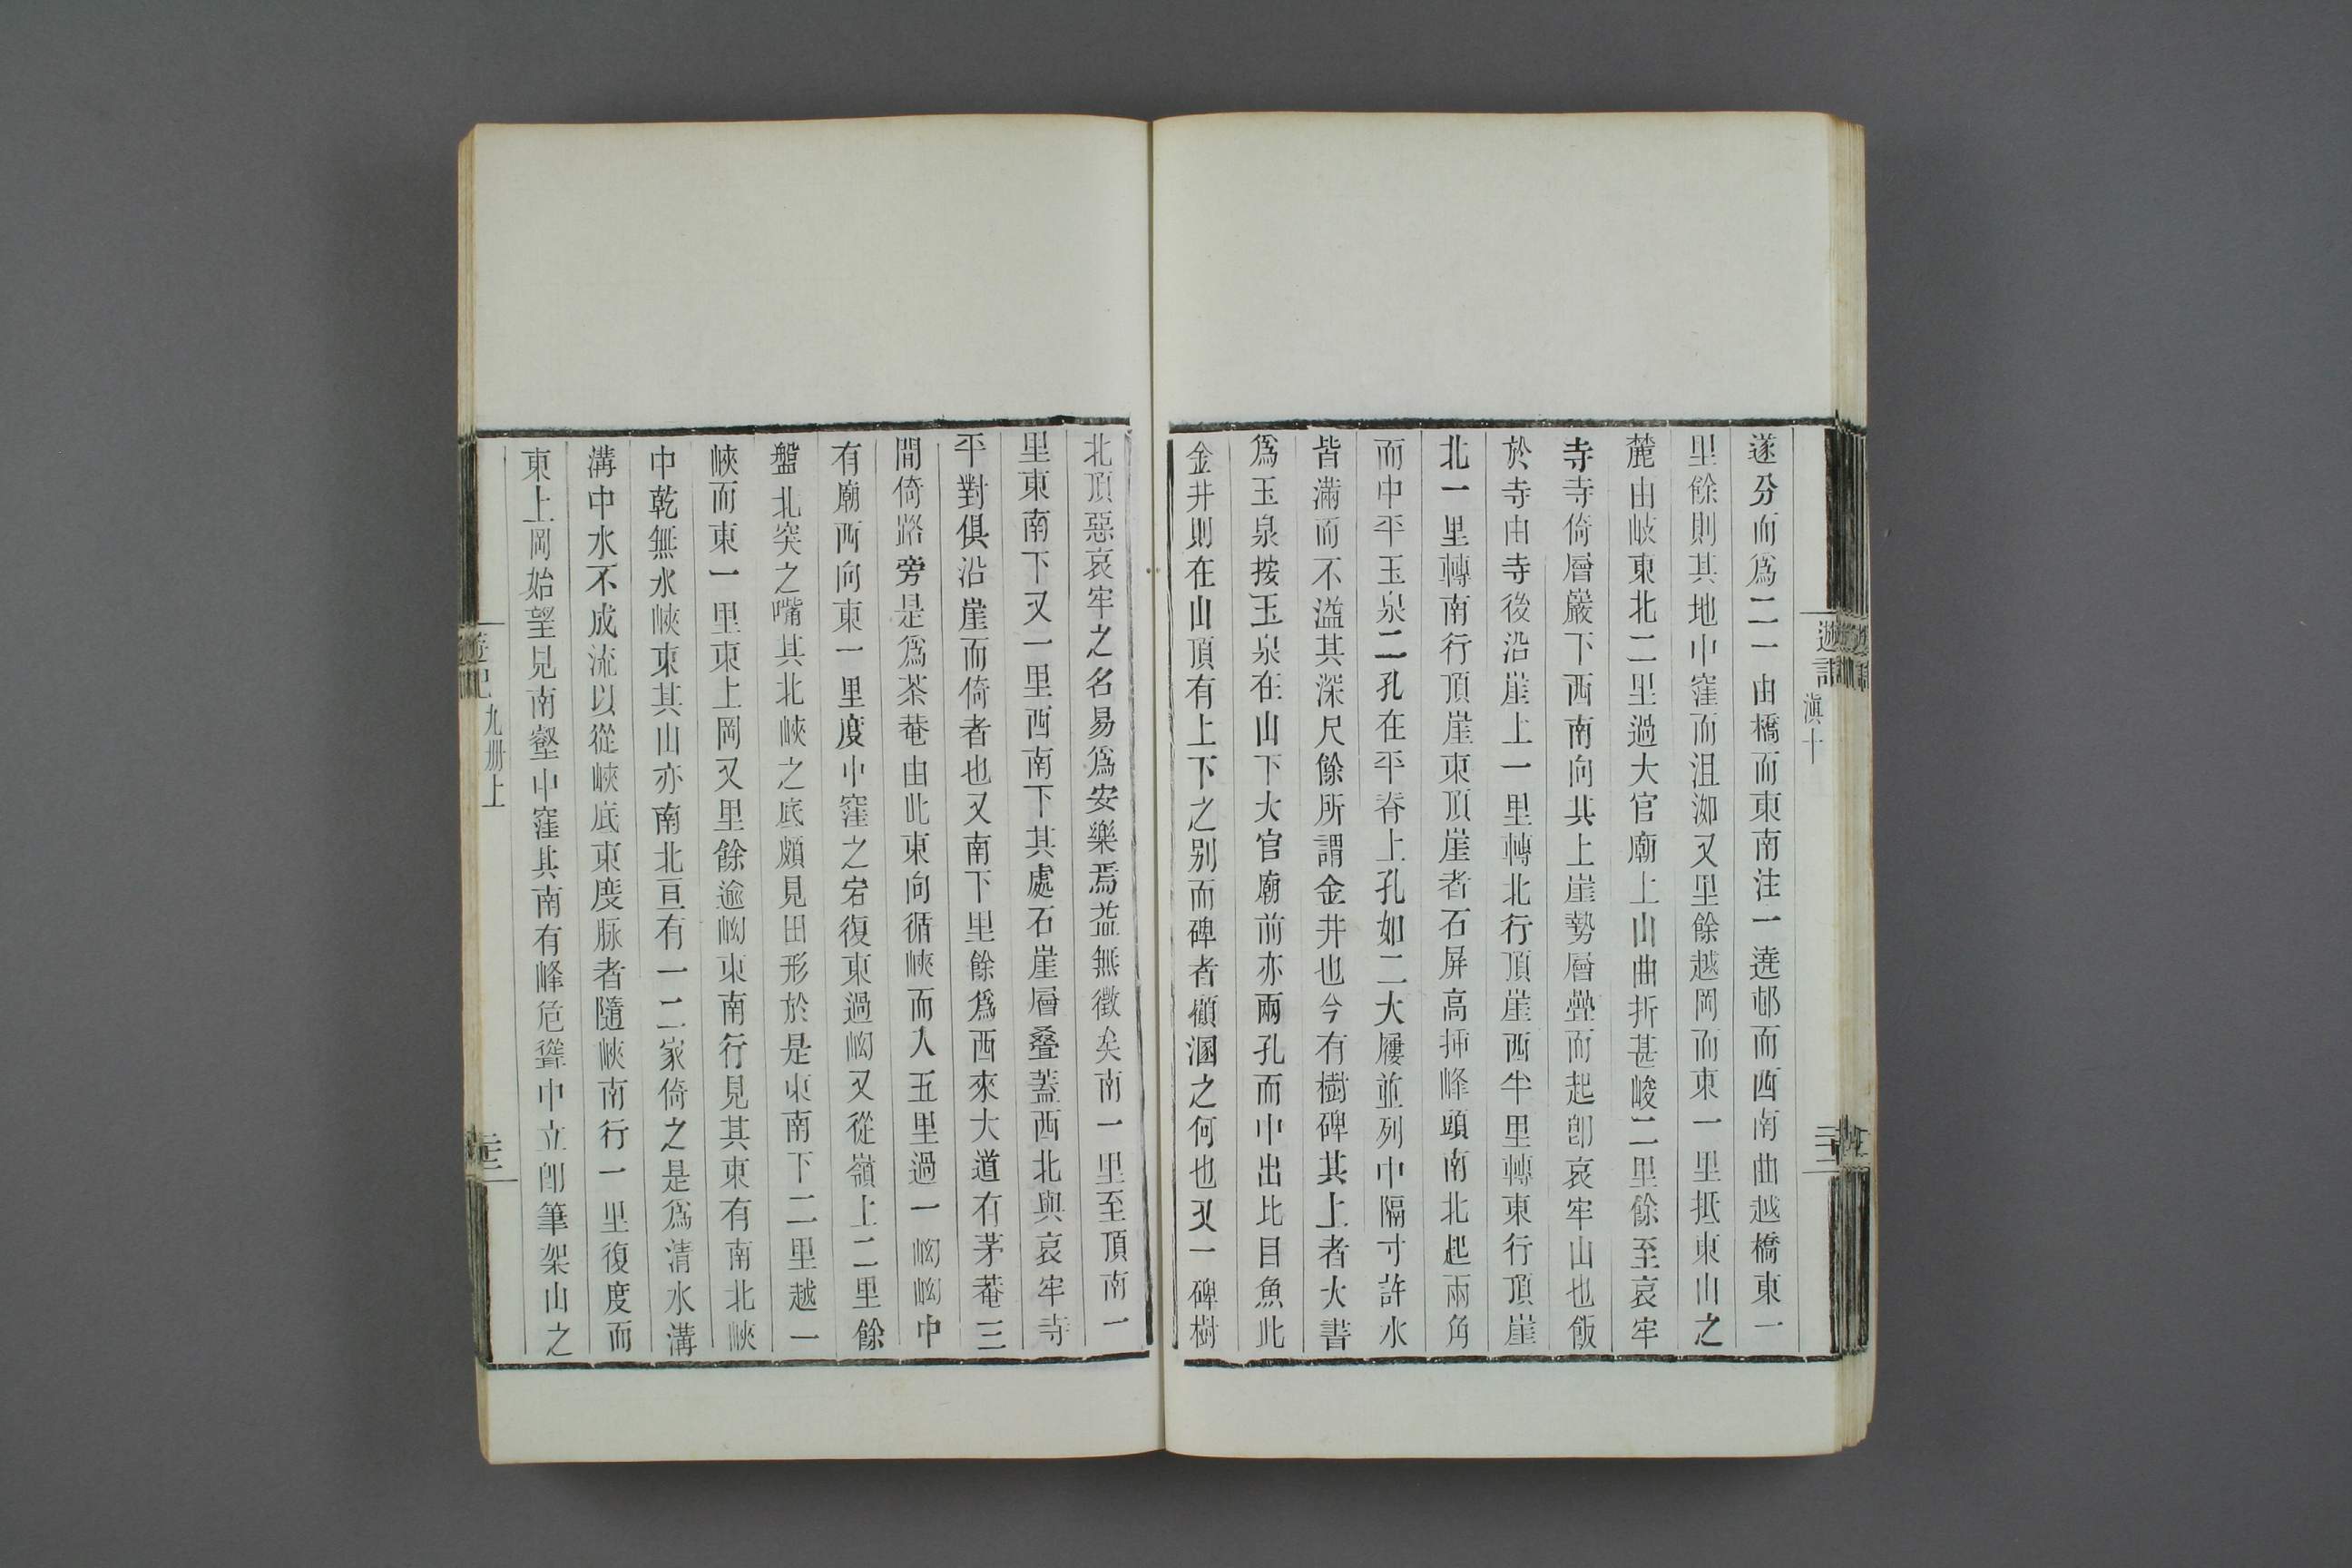 遊記
滇十
遂分而爲二一由橋而東南注一遶邨而西南曲越橋東一
里餘則其地中窪而沮洳又里餘越岡而東一里抵東山之
麓由岐東北二里過大官廟上山曲折甚峻二里餘至哀牢
寺寺倚層巖下西南向其上崖勢層疊而起卽哀牢山也飯
於寺由寺後沿崖上一里轉北行頂崖西半里轉東行頂崖
北一里轉南行頂崖東頂崖者石屏高揷峰頭南北起兩角
而中平玉泉二孔在平脊上孔如二大屨並列中隔寸許水
皆滿而不溢其深尺餘所謂金井也今有樹碑其上者大書
爲玉泉按玉泉在山下大官廟前亦兩孔而中出比目魚此
金井則在山頂有上下之别而碑者顧溷之何也又一碑樹
北頂惡哀牢之名易爲安樂焉益無徵矣南一里至頂南一
里東南下又一里西南下其處石崖層叠蓋西北與哀牢寺
平對俱沿崖而倚者也又南下里餘爲西來大道有茅菴三
間倚路旁是爲茶菴由此東向循峽而入五里過一㘭㘭中
有廟西向東一里度中窪之宕復東過㘭又從嶺上二里餘
盤北突之嘴其北峽之底頗見田形於是東南下二里越一
峽而東一里東上岡又里餘逾㘭東南行見其東有南北峽
中乾無水峽東其山亦南北亘有一二家倚之是爲清水溝
溝中水不成流以從峽底東度脉者隨峽南行一里復度而
東上岡始望見南壑中窪其南有峰危聳中立卽筆架山之
遊記
九册上